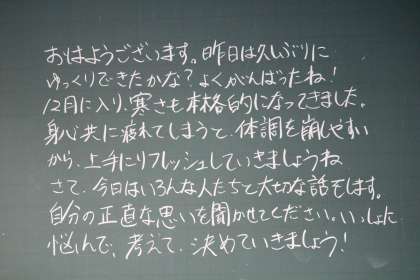 おはようございます。昨日は久しぶりに
ゆっくりできたかな?よくがんばったね!
12月に入り、寒さも本格的になってきました。
身心共に疲れてしまうと、体調を崩しやすい
から、上手にリフレッシュしていきましょうね
さて、今日はいろんな人たちと大切な話をします。
自分の正直な思いを聞かせてください。いっしょに
悩んで、考えて、決めていきましょう!